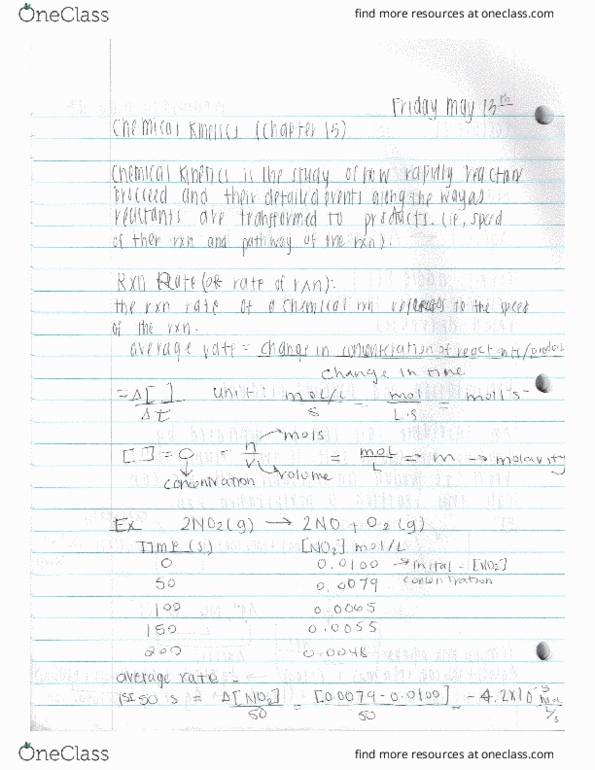 OneClass
find more resources at oneclass.com
Friday May 13th
Chemical Kinetics (Chapter 15)
Chemical Kinetics is the study of how rapidly reaction
procceed and their detailed events along the way as
reactants are transformed to products. (ie, speed
of ther rxn and pathway of the rxn).
Rxn Rate (or rate of rxn):
the rxn rate of a chemical rxn refers to the speed
of the rxn.
average rate = change in concentration of reactants/product
change in time
= Δ[ ] unit: mol/L = mol = mol l⁻s⁻
Δt s L·s
→ mols
[ ] = C = n = mol => m → molarity
V L
concentration → volume
Ex 2NO₂(g) → 2NO + O₂(g)
Time (s) [NO₂] mol/L
0 0.0100 → inital - [NO₂]
50 0.0079 concentration
100 0.0065
150 0.0055
200 0.0048
average rate:
1st 50 s = Δ[NO₂] = [0.0079 - 0.0100] = -4.2x10⁻⁵ mol
50 50 L/s
OneClass
find more resources at oneclass.com